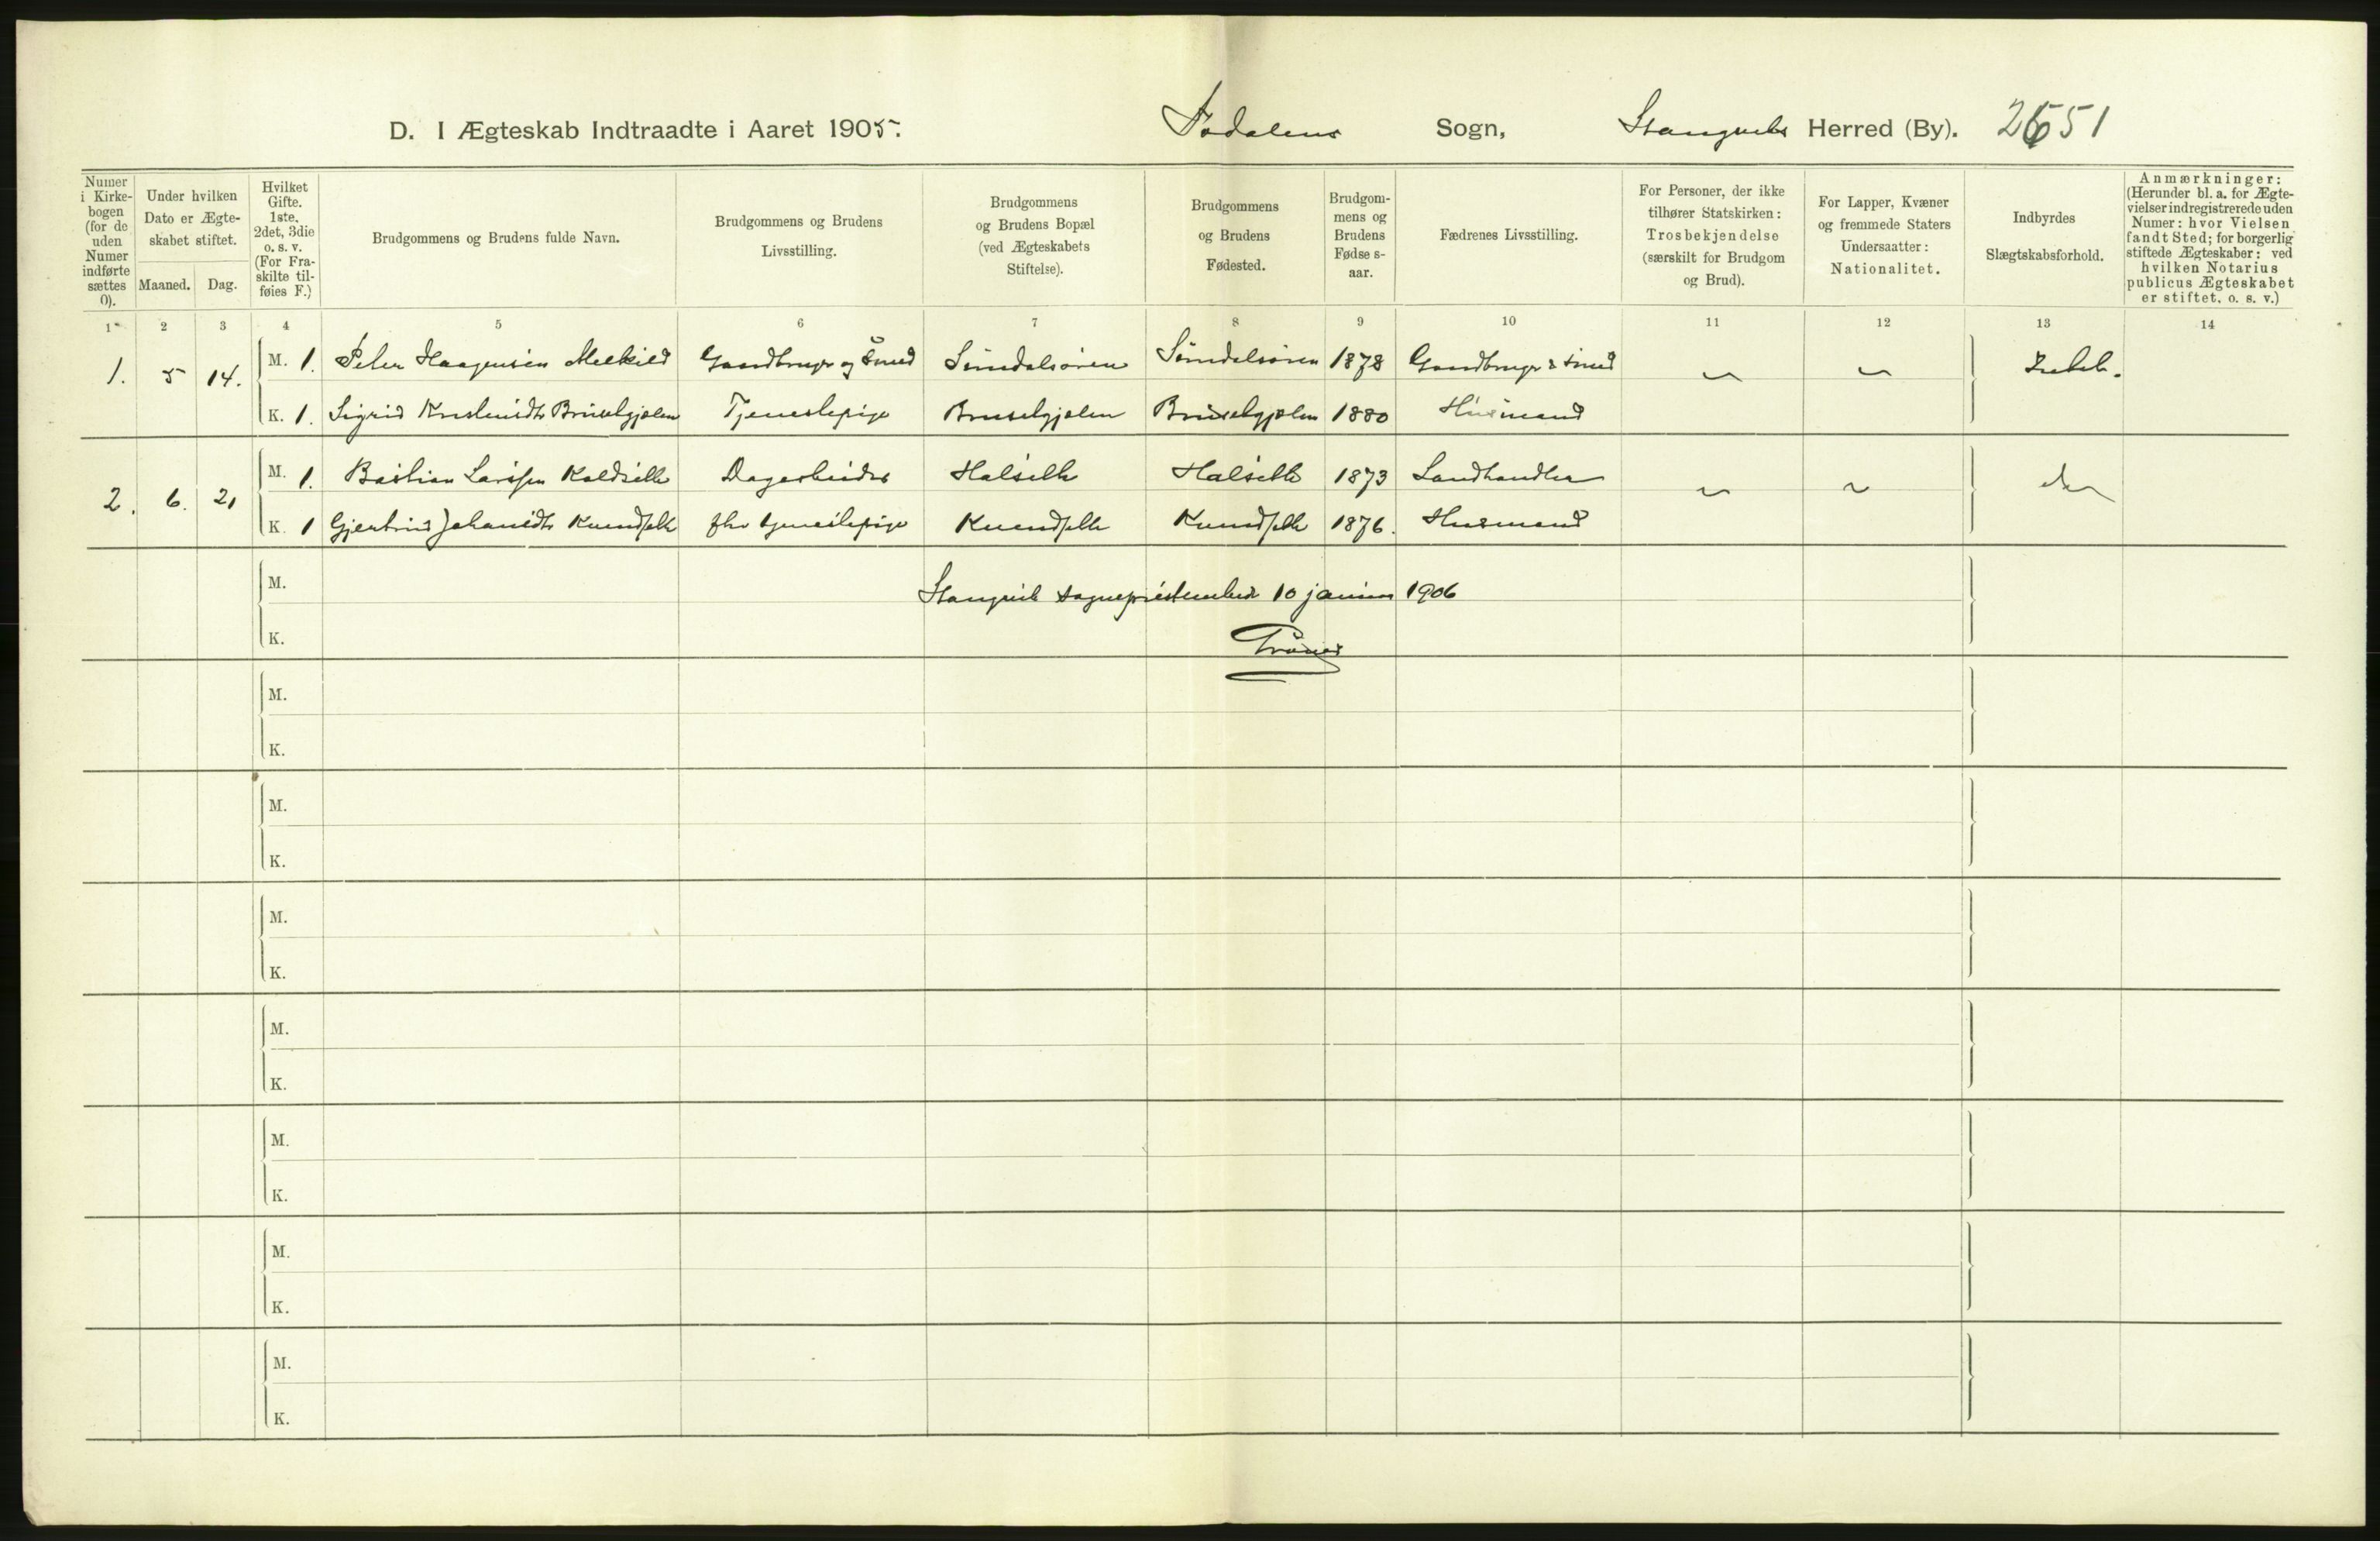 D. I Ægteskab Indtraadte i Aaret 1905. Todalens Sogn, Stangviks Herred (By). 2651
Numer i Kirkebogen (for de uden Numer indførte sættes 0).
Under hvilken Dato er Ægteskabet stiftet.
Maaned. Dag.
Hvilket Gifte. 1ste, 2det, 3die o. s. v. (For Fraskilte tilføies F.)
Brudgommens og Brudens fulde Navn.
Brudgommens og Brudens Livsstilling.
Brudgommens og Brudens Bopæl (ved Ægteskabets Stiftelse).
Brudgommens og Brudens Fødested.
Brudgommens og Brudens Fødselsaar.
Fædrenes Livsstilling.
For Personer, der ikke tilhører Statskirken: Trosbekjendelse (særskilt for Brudgom og Brud).
For Lapper, Kvæner og fremmede Staters Undersaatter: Nationalitet.
Indbyrdes Slægtskabsforhold.
Anmærkninger: (Herunder bl. a. for Ægtevielser indregistrerede uden Numer: hvor Vielsen fandt Sted; for borgerlig stiftede Ægteskaber: ved hvilken Notarius publicus Ægteskabet er stiftet. o. s. v.)
1 2 3 4 5 6 7 8 9 10 11 12 13 14
1. 5 14. M. 1. Peter Haagensen Gaardbruger og Smed 1878 Gaardbruger & smed
K. 1. Sigrid Tjenestepige 1880 Husmand
2. 6. 21 M. 1. Bastian Larssen Halseth Halseth 1873 Landhandler
K. 1 Kvendseth Kvendseth Kvendseth 1876. Husmand
M. Stangvik sogneprestembede 10 januar 1906
K.
M.
K.
M.
K.
M.
K.
M.
K.
M.
K.
M.
K.
M.
K.